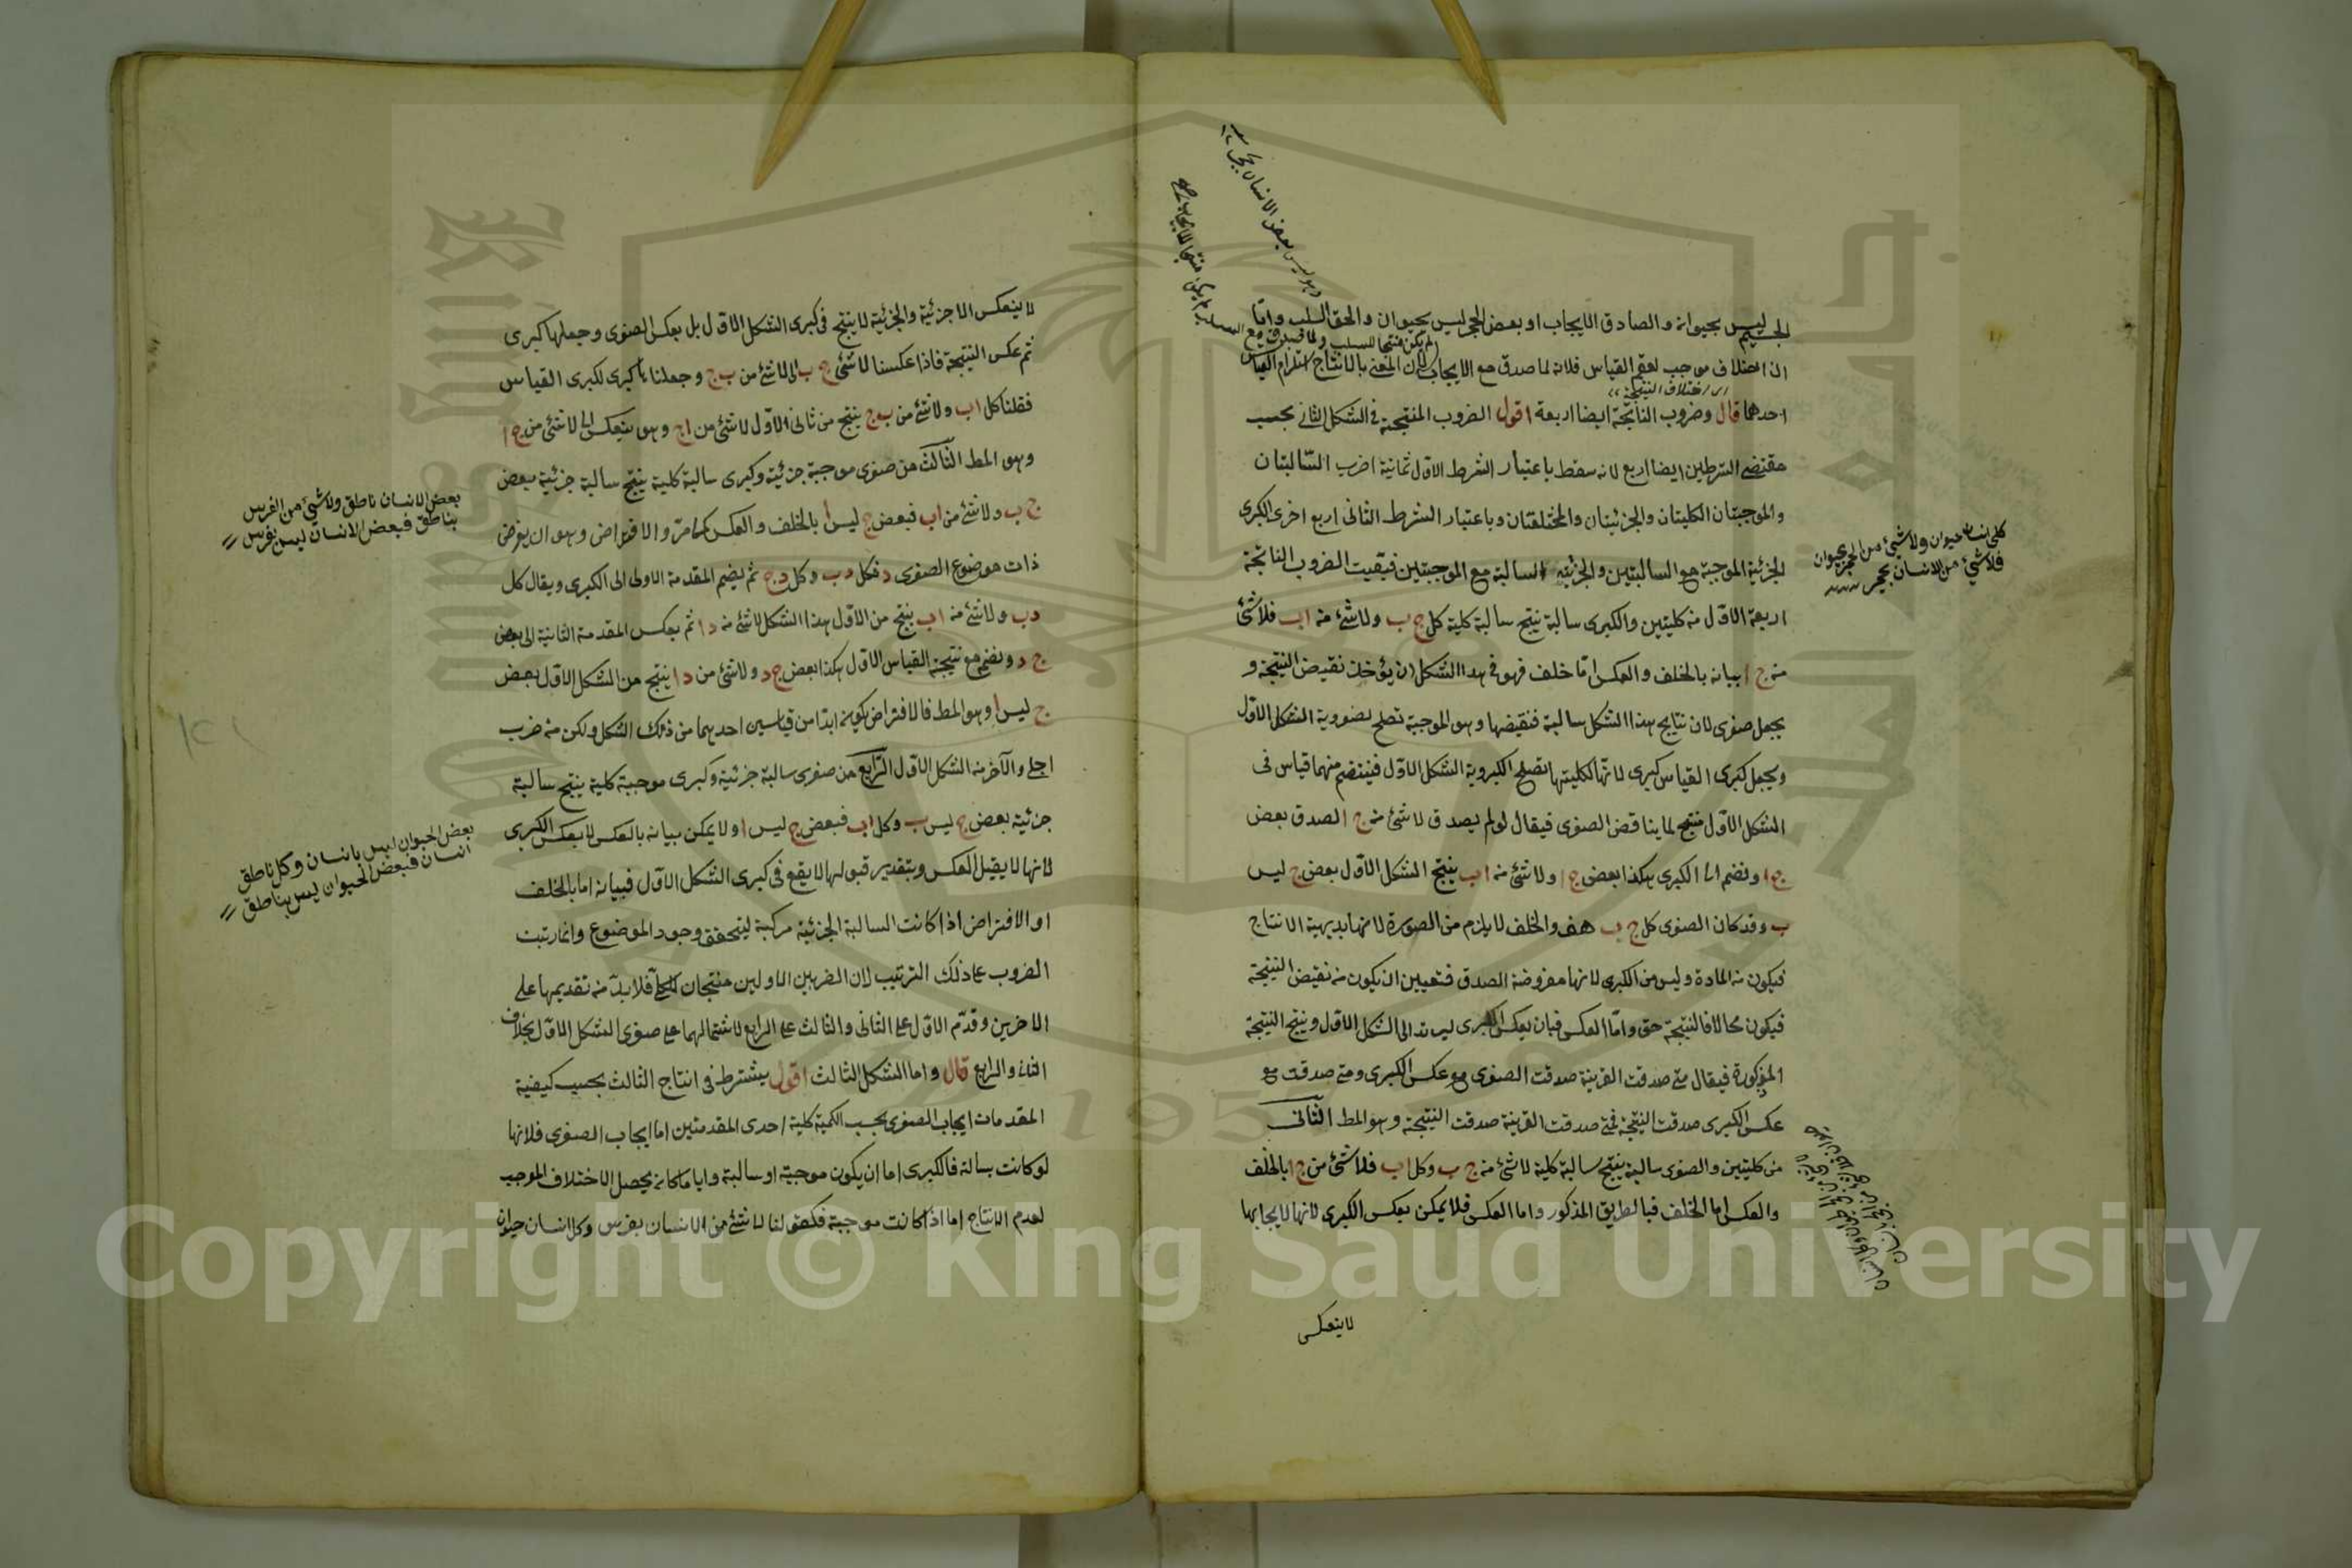 الجسم ليس بحيوان والصادق الايجاب او بعض الحجر ليس بحيوان والحق السلب واما
ان الاختلاف موجب لعقم القياس فلانه لما صدق مع الايجاب لان المعنى بالانتاج استلزام القياس
لم يكن منتجا للسلب ولما صدق مع
اى اختلاف النتيجة
احدهما قال وضروب الناتجة ايضا اربعة اقول الضروب المنتجة فى الشكل الثانى بحسب
مقتضى الشرطين ايضا اربع لانه سقط باعتبار الشرط الاول ثمانية اضرب السالبتان
والموجبتان الكليتان والجزئيتان والمختلفتان وباعتبار الشرط الثانى اربع اخرى الكبرى
الجزئية الموجبة مع السالبتين والجزئية السالبة مع الموجبتين فبقيت الضروب الناتجة
اربعة الاول من كليتين والكبرى سالبة ينتج سالبة كلية كل ج ب ولا شئ من ا ب فلا شئ
من ج ا بيانه بالخلف والعكس اما خلف فهو فى هذا الشكل ان يؤخذ نقيض النتيجة و
يجعل صغرى لان نتايج هذا الشكل سالبة فنقيضها وهو الموجبة تصلح لصغروية الشكل الاول
ويجعل كبرى القياس كبرى لانها لكليتها تصلح لكبروية الشكل الاول فينتضم منهما قياس فى
الشكل الاول منتج لما يناقض الصغرى فيقال لو لم يصدق لا شئ من ج ا لصدق بعض
ج ا ونضم الى الكبرى هكذا بعض ج ا ولا شئ من ا ب ينتج الشكل الاول بعض ج ليس
ب وقد كان الصغرى كل ج ب هف والخلف لا يلزم من الصورة لانها بديهية الانتاج
فيكون من المادة وليس من الكبرى لانها مفروضة الصدق فتعيين ان يكون من نقيض النتيجة
فيكون محالا فالنتيجة حق واما العكس فبان يعكس الكبرى ليرتد الى الشكل الاول وينتج النتيجة
المذكورة فيقال متى صدقت القرينة صدقت الصغرى مع عكس الكبرى ومتى صدقت مع
عكس الكبرى صدقت النتيجة فمتى صدقت القرينة صدقت النتيجة وهو المط الثانى
من كليتين والصغرى سالبة ينتج سالبة كلية لا شئ من ج ب وكل ا ب فلا شئ من ج ا بالخلف
والعكس اما الخلف فبالطريق المذكور واما العكس فلا يمكن بعكس الكبرى لانها لايجابها
لا ينعكس
كل انسان حيوان ولا شئ من الحجر بحيوان
فلا شئ من الانسان بحجر
لا ينعكس الا جزئية والجزئية لا ينتج فى كبرى الشكل الاول بل بعكس الصغرى وجعلها كبرى
ثم عكس النتيجة فاذا عكسنا لا شئ ج ب الى لا شئ من ب ج وجعلناها كبرى لكبرى القياس
فقلنا كل ا ب ولا شئ من ب ج ينتج من ثانى الاول لا شئ من ا ج وهو ينعكس الى لا شئ من ج ا
وهو المط الثالث من صغرى موجبة جزئية وكبرى سالبة كلية ينتج سالبة جزئية بعض
ج ب ولا شئ من ا ب فبعض ج ليس ا بالخلف والعكس كما مر والافتراض وهو ان يفرض
ذات موضوع الصغرى د فكل د ب وكل د ج ثم يضم المقدمة الاولى الى الكبرى ويقال كل
د ب ولا شئ من ا ب ينتج من الاول هذا الشكل لا شئ من د ا ثم بعكس المقدمة الثانية الى بعض
ج د ونضم مع نتيجة القياس الاول هكذا بعض ج د ولا شئ من د ا ينتج من الشكل الاول بعض
ج ليس ا وهو المط فالافتراض يكون ابدا من قياسين احدهما من ذلك الشكل ولكن من ضرب
اجلى والآخر من الشكل الاول الرابع من صغرى سالبة جزئية وكبرى موجبة كلية ينتج سالبة
جزئية بعض ج ليس ب وكل ا ب فبعض ج ليس ا ولا يمكن بيانه بالعكس لا بعكس الكبرى
لانها لا يقبل العكس وبتقدير قبولها لا يقع فى كبرى الشكل الاول فبيانه اما بالخلف
او الافتراض اذا كانت السالبة الجزئية مركبة ليتحقق وجود الموضوع وانما رتبت
الضروب على ذلك الترتيب لان الضربين الاولين منتجان للكلى فلا بد من تقديمها على
الاخرين وقدم الاول على الثانى والثالث على الرابع لاشتمالهما على صغرى الشكل الاول بخلاف
الثانى والرابع قال واما الشكل الثالث اقول يشترط فى انتاج الثالث بحسب كيفية
المقدمات ايجاب الصغرى بحسب الكمية كلية احدى المقدمتين اما ايجاب الصغرى فلانها
لو كانت سالبة فالكبرى اما ان يكون موجبة او سالبة وايا ما كان يحصل الاختلاف الموجب
لعدم الانتاج اما اذا كانت موجبة فكقولنا لا شئ من الانسان بفرس وكل انسان حيوان
بعض الانسان ناطق ولا شئ من الفرس
بناطق فبعض الانسان ليس بفرس
بعض الحيوان ليس بانسان وكل ناطق
انسان فبعض الحيوان ليس بناطق
Copyright © King Saud University